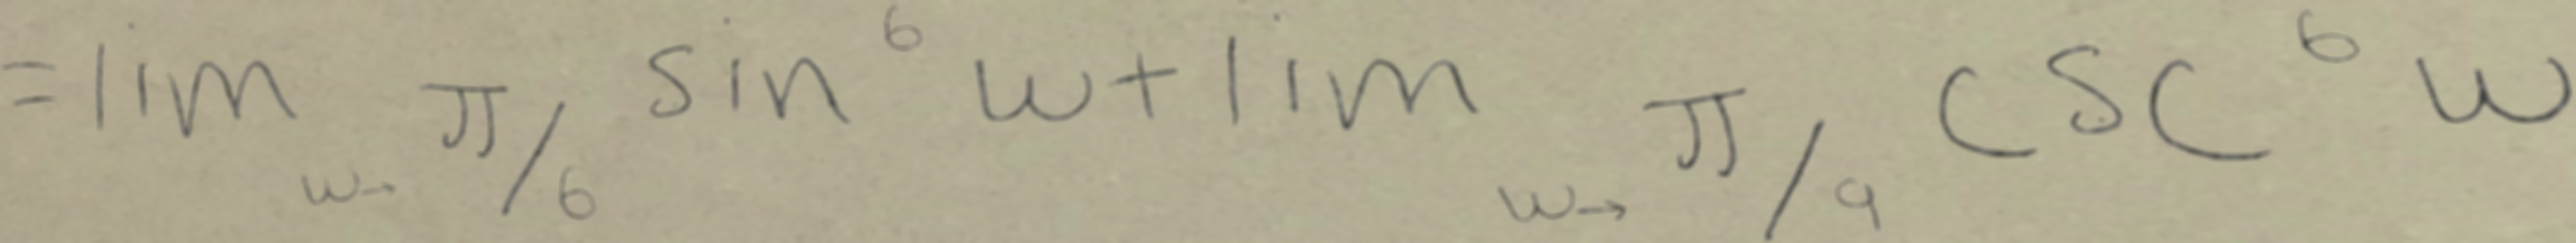 = lim_{w→ π/6} sin^6 w + lim_{w→ π/9} csc^6 w